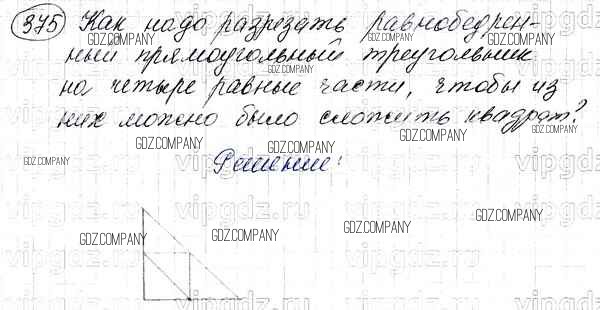 375 Как надо разрезать равнобедрен-
ный прямоугольный треугольник
на четыре равные части, чтобы из
них можно было сложить квадрат?
Решение:
GDZ.COMPANY
GDZ.COMPANY
GDZ.COMPANY
GDZ.COMPANY
GDZ.COMPANY
GDZ.COMPANY
GDZ.COMPANY
GDZ.COMPANY
GDZ.COMPANY
GDZ.COMPANY
GDZ.COMPANY
GDZ.COMPANY
GDZ.COMPANY
GDZ.COMPANY
vipgdz.ru
vipgdz.ru
vipgdz.ru